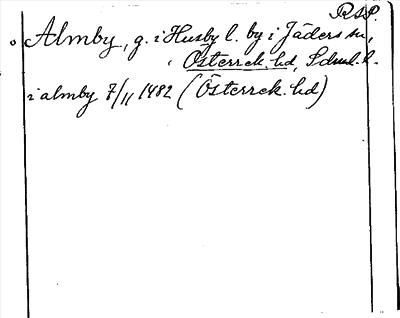 RSP.
Almby, g. i Husby l. by i Jäders sn,
Österrek. hd, Sdml. l.
i almby 7/11 1482 (Österrek. hd)